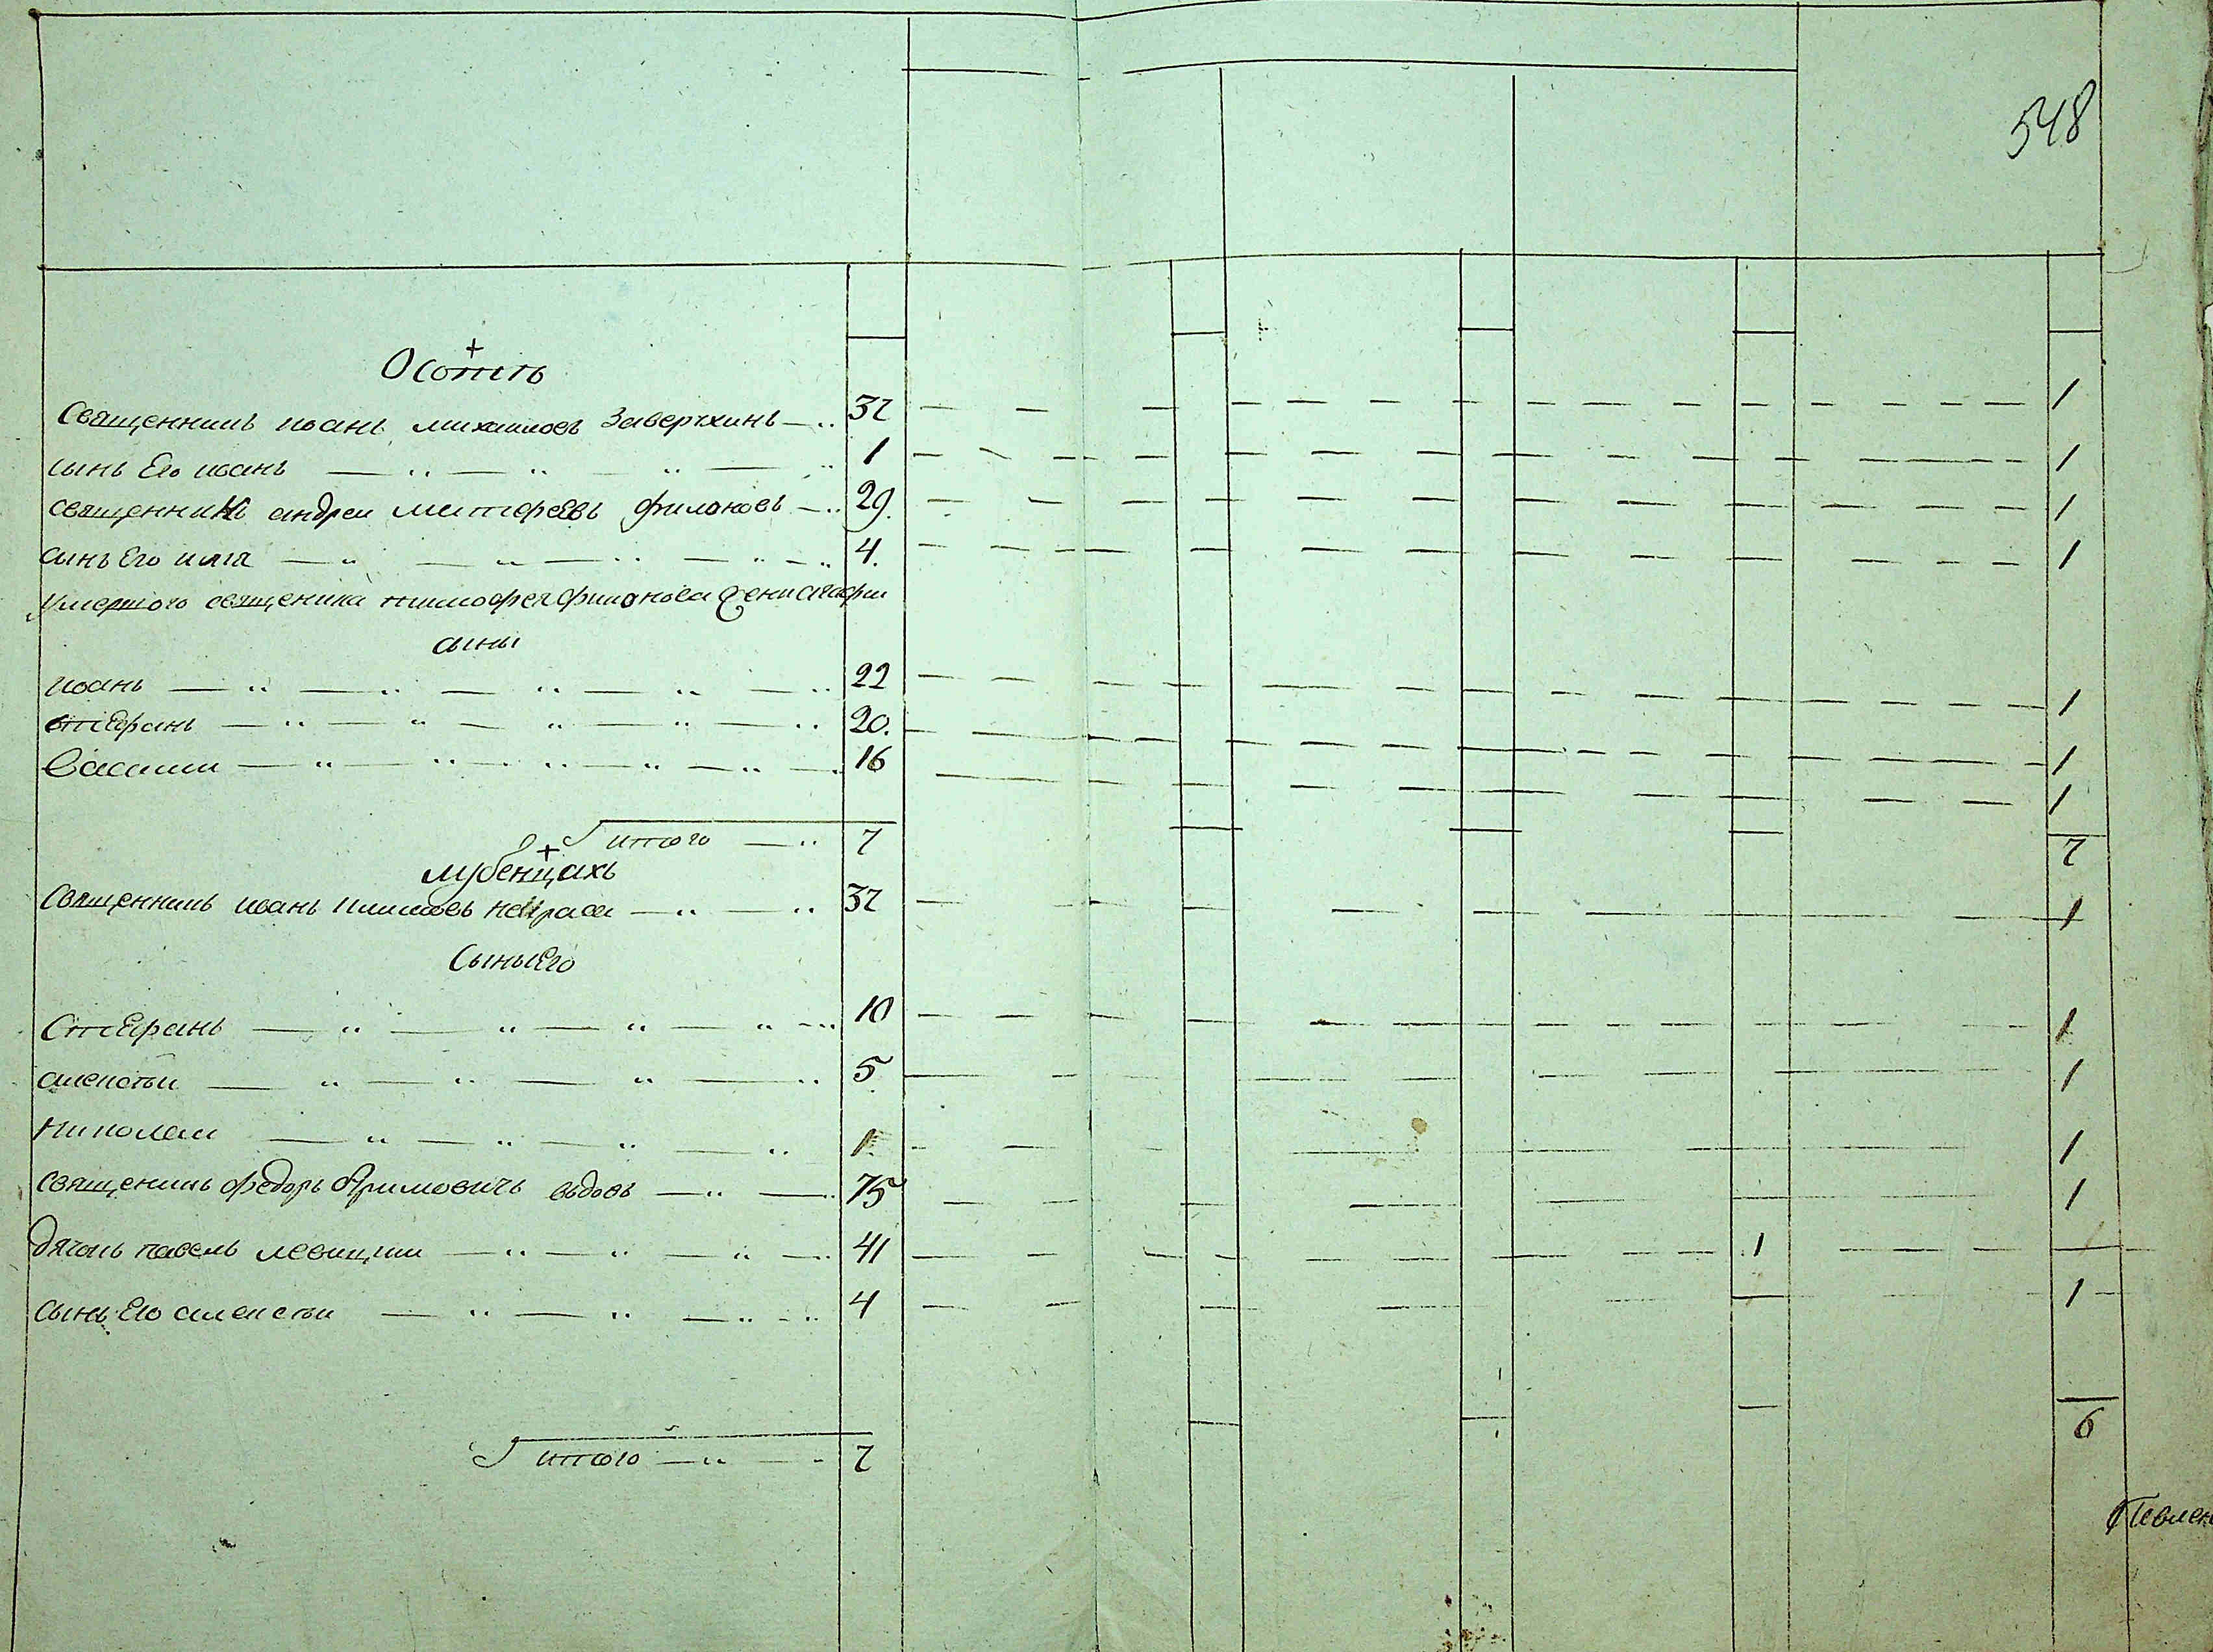 548
Осотъ
Священникъ иоанъ михаиловъ Заверткинъ 37 1
сынъ Его иванъ 1 1
священникъ андреи Матфеевъ филоновъ 29 1
сынъ Его илія 4 1
Умершого священика тимофея филонова жени агафии
сыны
иоанъ 22 1
стефанъ 20 1
Василии 16 1
итого 7 7
лубенцахъ
Священникъ иванъ 37 1
Сыны Его
Стефанъ 10 1
алексѣи 5 1
Николаи 1 1
Священикъ федоръ вдовъ 75 1
дяконъ павелъ левицкии 41 1
Сынъ Его алексѣи 4 1
итого 7 6